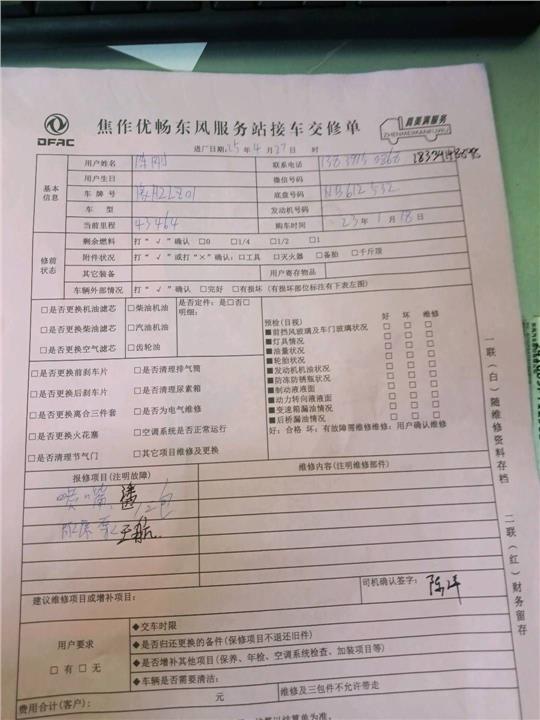 DFAC
焦作优畅东风服务站接车交修单
真美满服务
ZHENMEIMANFUWU
进厂日期: 25 年 4 月 27 日 时
基本信息
用户姓名 陈刚 联系电话
用户生日 微信号码
车牌号 底盘号码 NB612532
车型 发动机号码
当前里程 43464 购车时间 23 年 1 月 18 日
修前状态
剩余燃料 打“√”确认 □0 □1/4 □1/2 □1
附件状况 打“√”或打“×”确认：□工具 □灭火器 □备胎 □千斤顶
其它装备 用户寄存物品
车辆外部情况 打“√”确认 □完好 □有损坏（有损坏部位标注有下表左图）
□是否更换机油滤芯 □柴油机油 是否定件：是□否□
□是否更换柴油滤芯 □汽油机油 明细：
□是否更换空气滤芯 □齿轮油
□是否更换前刹车片 □是否清理排气筒
□是否更换后刹车片 □是否清理尿素箱
□是否更换离合三件套 □是否为电气维修
□是否更换火花塞 □空调系统是否正常运行
□是否清理节气门 □其它项目维修及更换
预检(目视) 好 坏 维修
■前挡风玻璃及车门玻璃状况 □ □ □
■灯具情况 □ □ □
■油量状况 □ □ □
■轮胎状况 □ □ □
■发动机机油状况 □ □ □
■防冻防锈瓶状况 □ □ □
■制动液液面 □ □ □
■动力转向液液面 □ □ □
■变速箱漏油情况 □ □ □
■后桥漏油情况 □ □ □
好：合格 坏：有故障需维修维修：用户确认维修
报修项目(注明故障) 维修内容(注明维修部件)
喷嘴
王航
建议维修项目或增补项目：
司机确认签字：
用户要求
□有 □无
◆交车时限
◆是否归还更换的备件(保修项目不退还旧件)
◆是否增补其他项目(保养、年检、空调系统检查、加装项目等)
◆车辆是否需要清洁：
费用合计(客户)： 元 维修及三包件不允许带走
一联(白)随维修资料存档
二联(红)财务留存